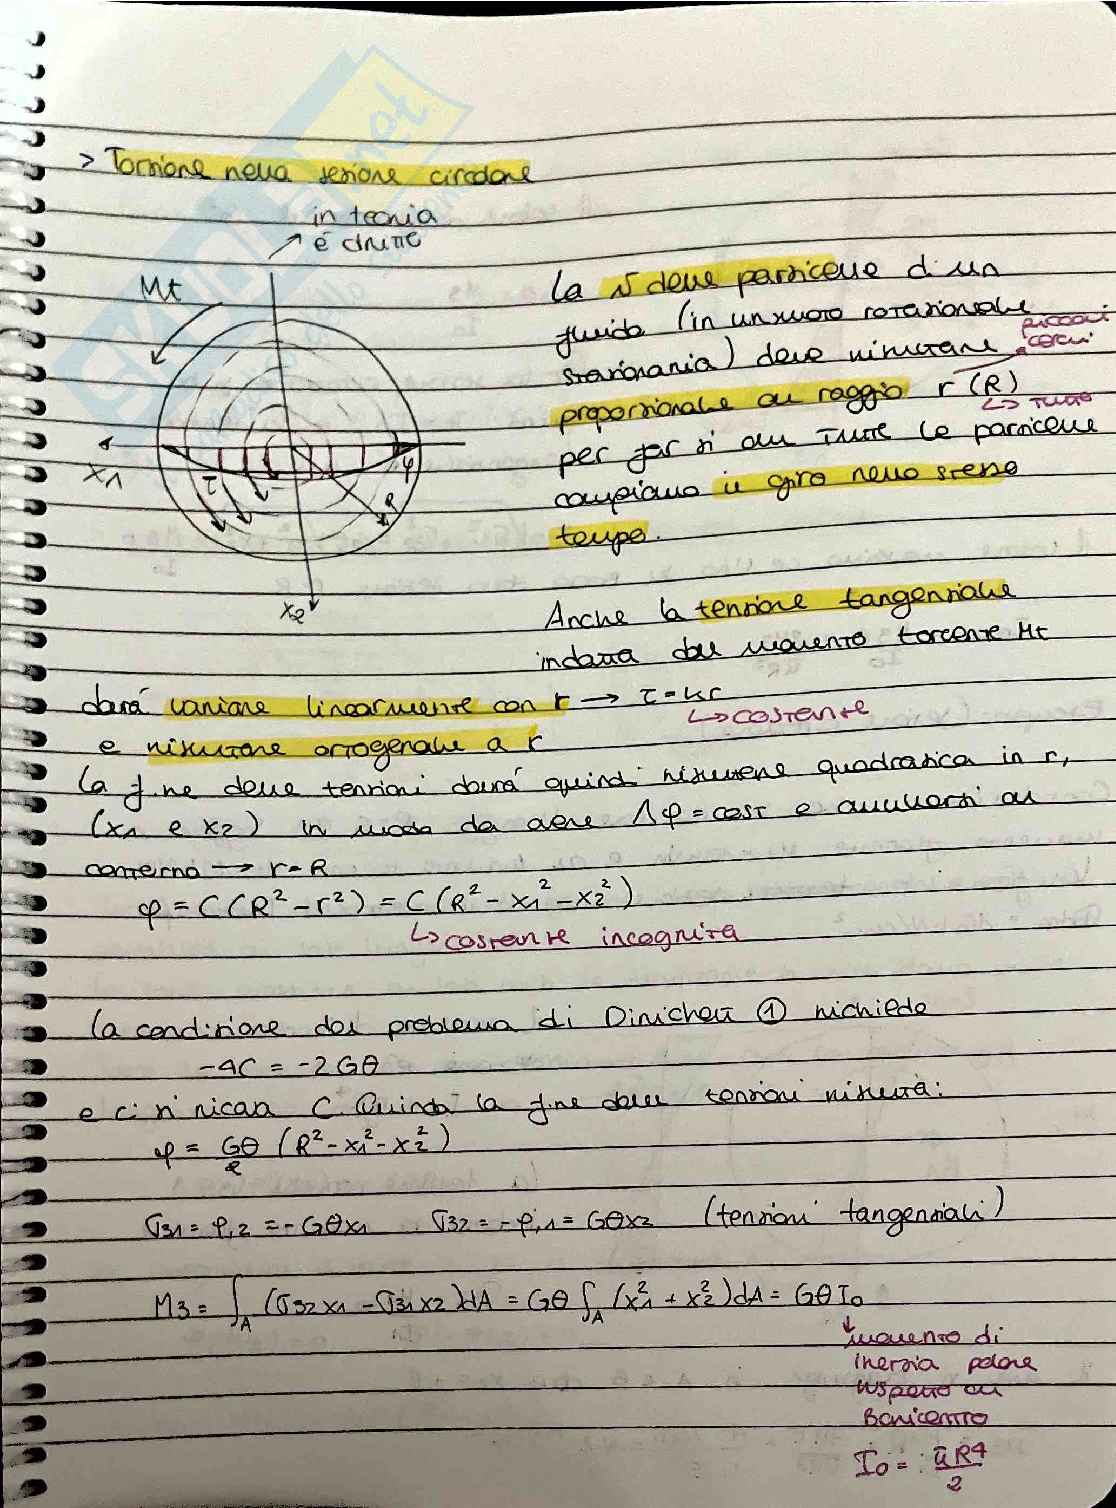 > Torsione nella sezione circolare
in teoria
é ch
Mt
La v delle particelle di un
fluido (in un moto rotazionale
stazionario) deve risultare
piccoli
cerchi
proporzionale al raggio r (R)
↳ tutto
per far sì che tutte le particelle
compiano il giro nello stesso
tempo.
x1
τ
φ
R
x2
Anche la tensione tangenziale
indotta dal momento torcente Mt
dovrá variare linearmente con r → τ = kr
↳ costante
e risultare ortogonale a r
La f.ne delle tensioni dovrá quindi risultare quadratica in r,
(x1 e x2) in modo da avere Λφ = cost e annullarsi al
contorno → r = R
φ = C (R² - r²) = C (R² - x1² - x2²)
↳ costante incognita
La condizione del problema di Dirichlet ① richiede
-4C = -2Gθ
e ci si ricava C. Quindi la f.ne delle tensioni risulta:
φ = Gθ/2 (R² - x1² - x2²)
σ31 = φ,2 = -Gθx1 σ32 = -φ,1 = Gθx2 (tensioni tangenziali)
M3 = ∫A (σ32 x1 - σ31 x2) dA = Gθ ∫A (x1² + x2²) dA = Gθ Io
↓ momento di
inerzia polare
rispetto al
Baricentro
Io = πR⁴/2